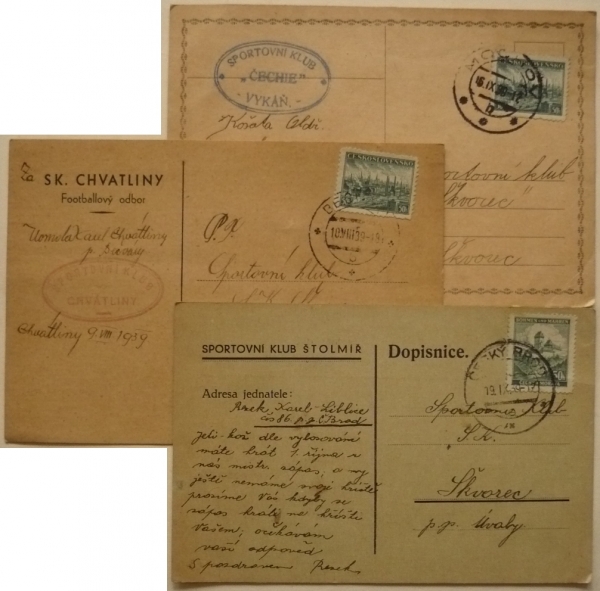 SPORTOVNÍ KLUB
„ČECHIE"
VYKÁŇ
Košata Oldř.
ČESKOSLOVENSKO
Sportovní klub
Škvorec
Škvorec
SK. CHVATLINY
Footballový odbor
Karel Chvátliny
SPORTOVNÍ KLUB
CHVATLINY
Chvátliny 9. VIII 1939
ČESKOSLOVENSKO
10.VIII 39
P.T.
Sportovní klub
SPORTOVNÍ KLUB ŠTOLMÍŘ
Adresa jednatele:
Karel - Liblice
čs 86. p. Č. Brod
Jeli-kož dle vylosování
máte hrát 1. října u
nás mistr. zápas, a my
ještě nemáme svoje hřiště
prosíme Vás kdyby se
zápas hrál na hřišti
Vašem, očekávám
vaší odpověď
S pozdravem
Dopisnice.
ČESKÝ BROD
Sportovní Klub
S.K.
Škvorec
p.p. Úvaly